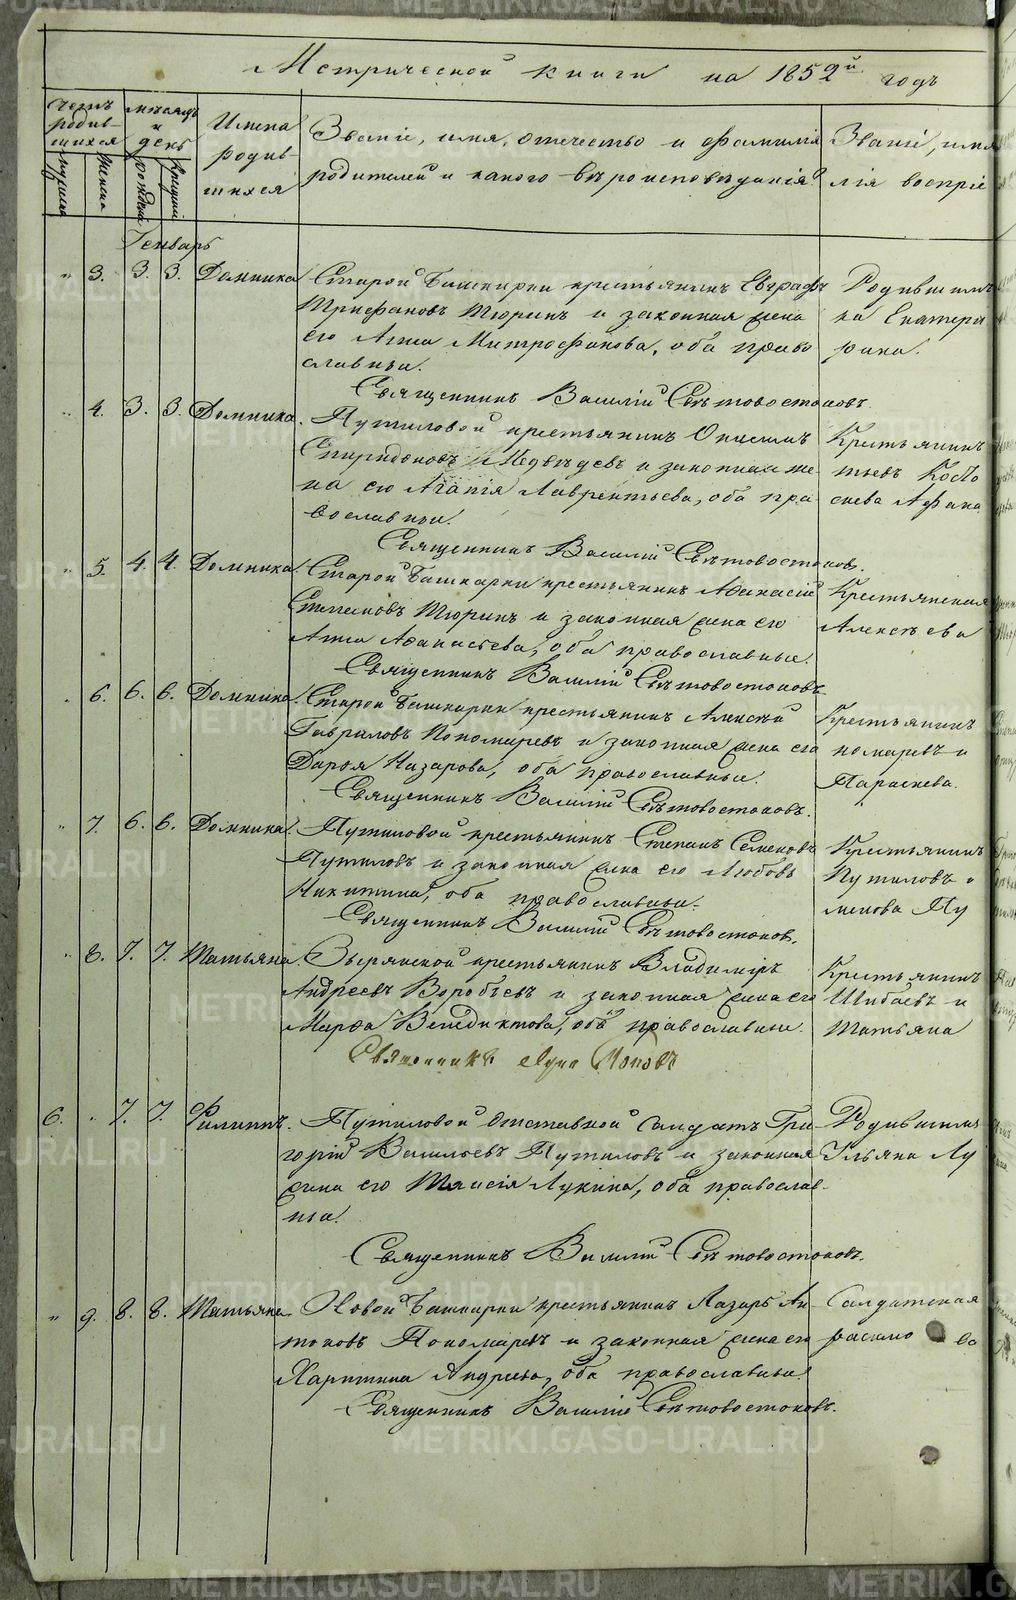 Метрической книги на 1852й годъ
Четъ родив-шихся
мѣсяцъ и день
Имена родив-шихся
Званіе, имя, отечество и фамилія
родителей и какого вѣроисповѣданія
Званіе, имя
лія воспріе
мужеска
женска
рожденія
крещенія
Генварь
" 3. 3. 3. Домника
Старой Башкарки крестьянинъ Евграфъ
Трифановъ Тюринъ и законная жена
его Анна Митрофанова, оба право
славные.
Родившимъ
ка Екатери
фана.
Священникъ Василій Свѣтовостоковъ.
" 4. 3. 3. Домника.
Путиловой крестьянинъ Онисимъ
Спиридоновъ Медвѣдевъ и законная же-
на его Агапія Лаврентьева, оба пра-
вославные.
Крестьянинъ
тьевъ
Афана
Священникъ Василій Свѣтовостоковъ.
" 5. 4. 4. Домника.
Старой Башкарки крестьянинъ Афанасій
Степановъ Тюринъ и законная жена его
Анна Афанасьева, оба православные.
Крестьянская
Алексѣева
Священникъ Василій Свѣтовостоковъ.
" 6. 6. 6. Домника.
Старой Башкарки крестьянинъ Алексѣй
Гавриловъ Пономаревъ и законная жена его
Дарья Назарова, оба православные.
Крестьянинъ
номаревъ и
Параскева.
Священникъ Василій Свѣтовостоковъ.
" 7. 6. 6. Домника.
Путиловой крестьянинъ Степанъ Семеновъ
Путиловъ и законная жена его Любовь
Никитина, оба православные.
Крестьянинъ
Путиловъ
менова Пу
Священникъ Василій Свѣтовостоковъ.
" 8. 7. 7. Татьяна.
Зырянской крестьянинъ Владимiръ
Андреевъ Воробьевъ и законная жена его
Марфа Венедиктова, оба православные.
Крестьянинъ
Шибаевъ и
Татьяна
Священникъ Поповъ
6. " 7. 7. Филиппъ.
Путиловой отставной Салдатъ Гри-
горій Васильевъ Путиловъ и законная
жена его Таисія Лукина, оба православ-
ные.
Родившимъ
Ульяна Лу
Священникъ Василій Свѣтовостоковъ.
" 9. 8. 8. Татьяна
Новой Башкарки крестьянинъ Лазарь Ан-
тоновъ Пономаревъ и законная жена его
Харитина Андреева, оба православные
Салдатская
расимо ва
Священникъ Василій Свѣтовостоковъ.
METRIKI.GASO-URAL.RU